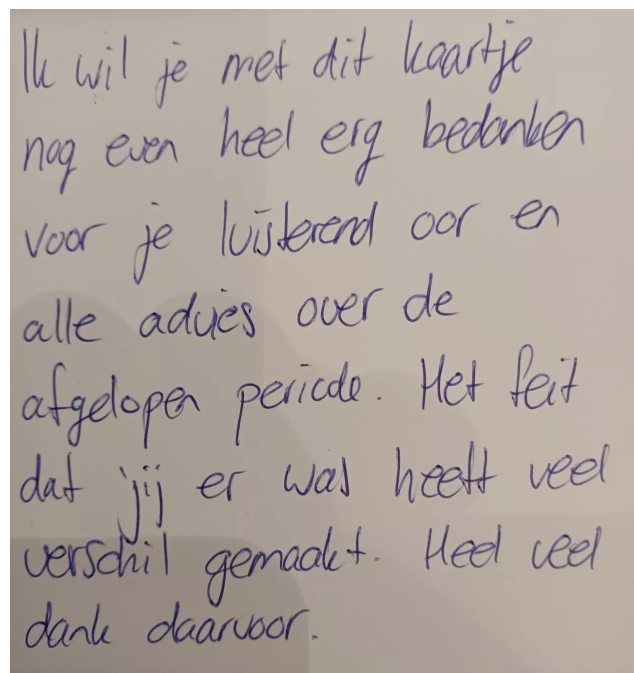 Ik wil je met dit kaartje
nog even heel erg bedanken
voor je luisterend oor en
alle advies over de
afgelopen periode. Het feit
dat jij er was heeft veel
verschil gemaakt. Heel veel
dank daarvoor.